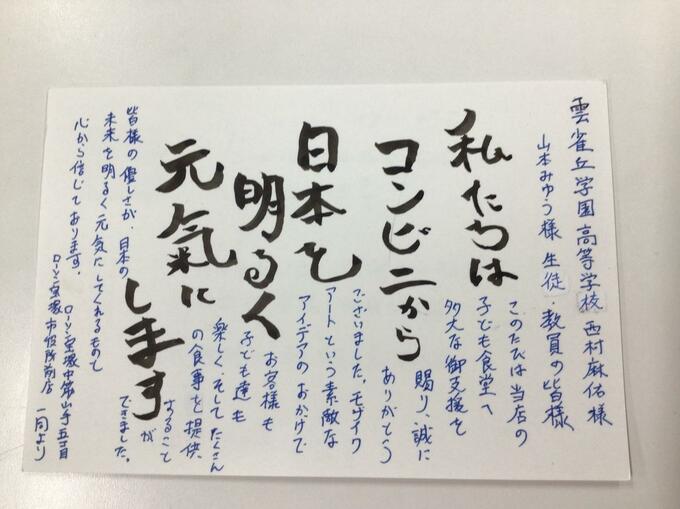 雲雀丘学園高等学校 西村麻佑様
山本みゆう様 生徒・教員の皆様
このたびは当店の
子ども食堂へ
多大な御支援を
賜り、誠に
ありがとう
ございました。モザイク
アートという素敵な
アイデアのおかげで
お客様も
子ども達も
楽しく、そしてたくさん
の食事を提供
することが
できました。
皆様の優しさが、日本の
未来を明るく元気にしてくれるものと
心から信じております。
ローソン宝塚中筋山手五丁目
ローソン宝塚市役所前店 一同より
私たちは
コンビニから
日本を
明るく
元氣に
します